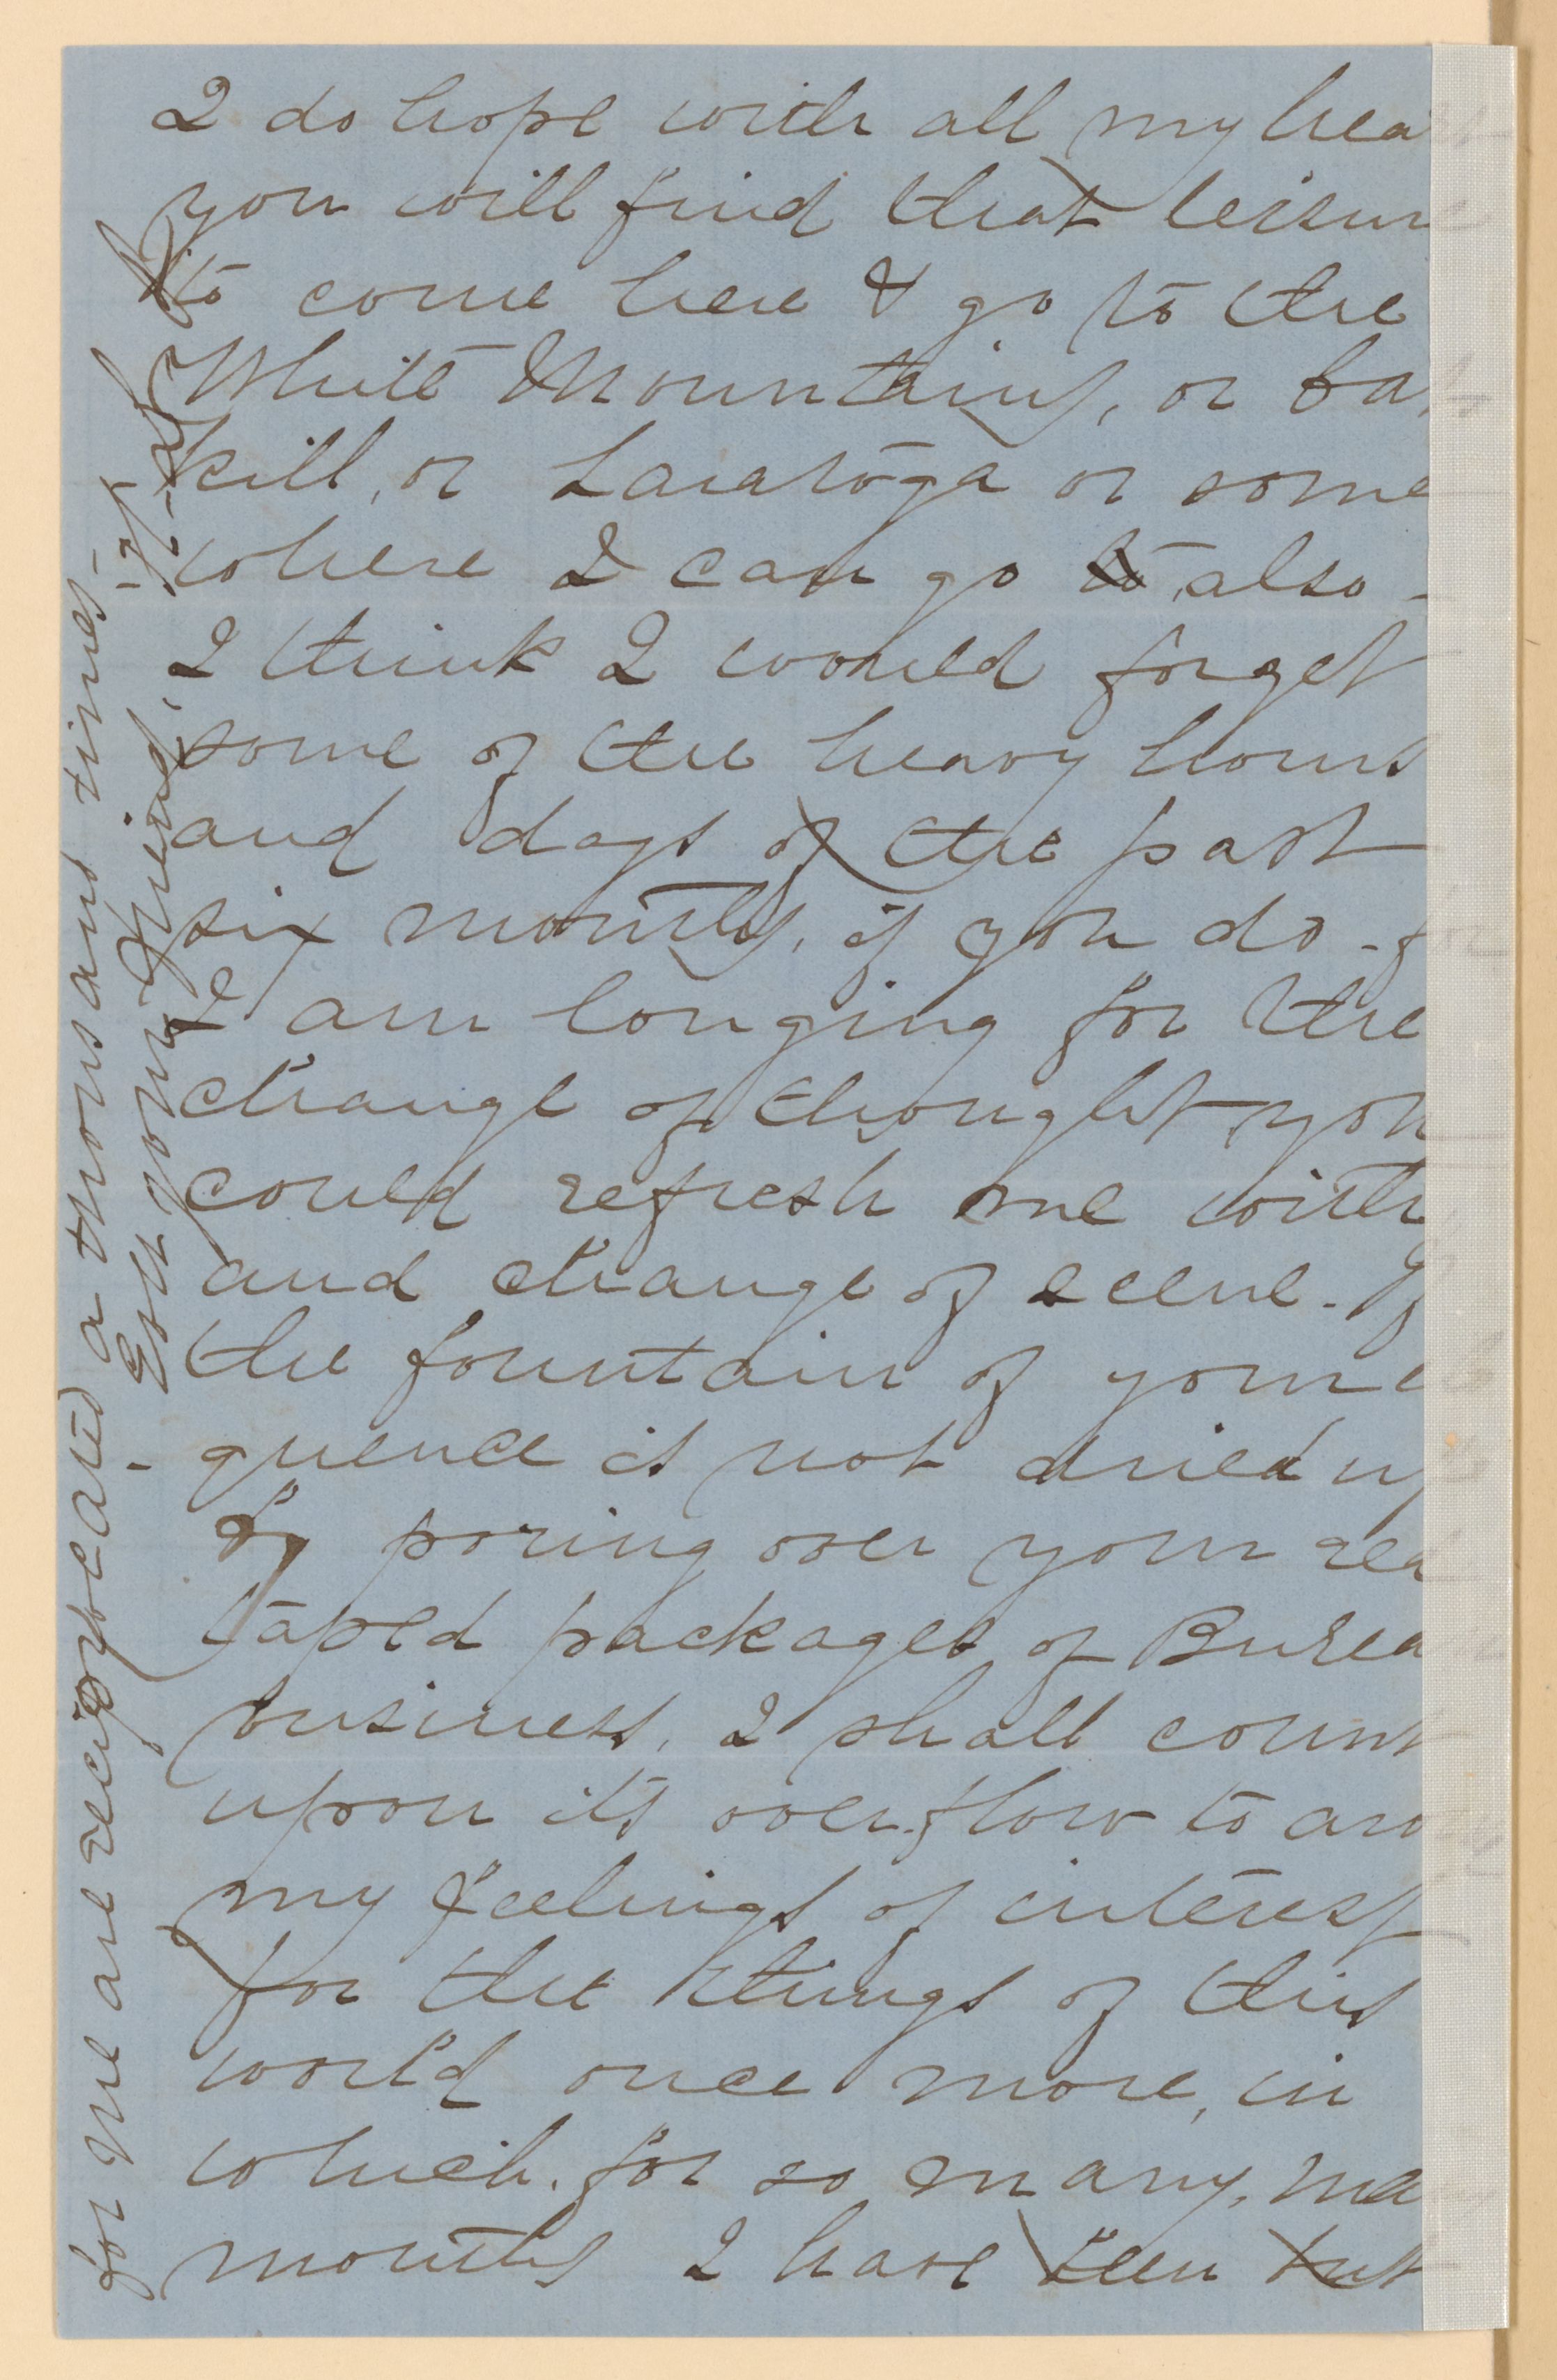 I do hope with all my hea
you will find that leisure
to come here & go to the
White Mountains, or Cats
kill, or Saratoga or some
where I can go to, also -
I think I would forget
some of the heavy hours
and days of the past
six months, if you do - for
I am longing for the
change of thought, you
could refresh me with
and change of scene. If
the fountain of your e
- quence is not dried up
by poring over your red
taped packages of Burea
business, I shall count
upon its overflow to aro
my feelings of interest
for the things of this
world once more, in
which, for so many, ma
months I have been but
for me are reciprocated a thousand times -
Ever your friend